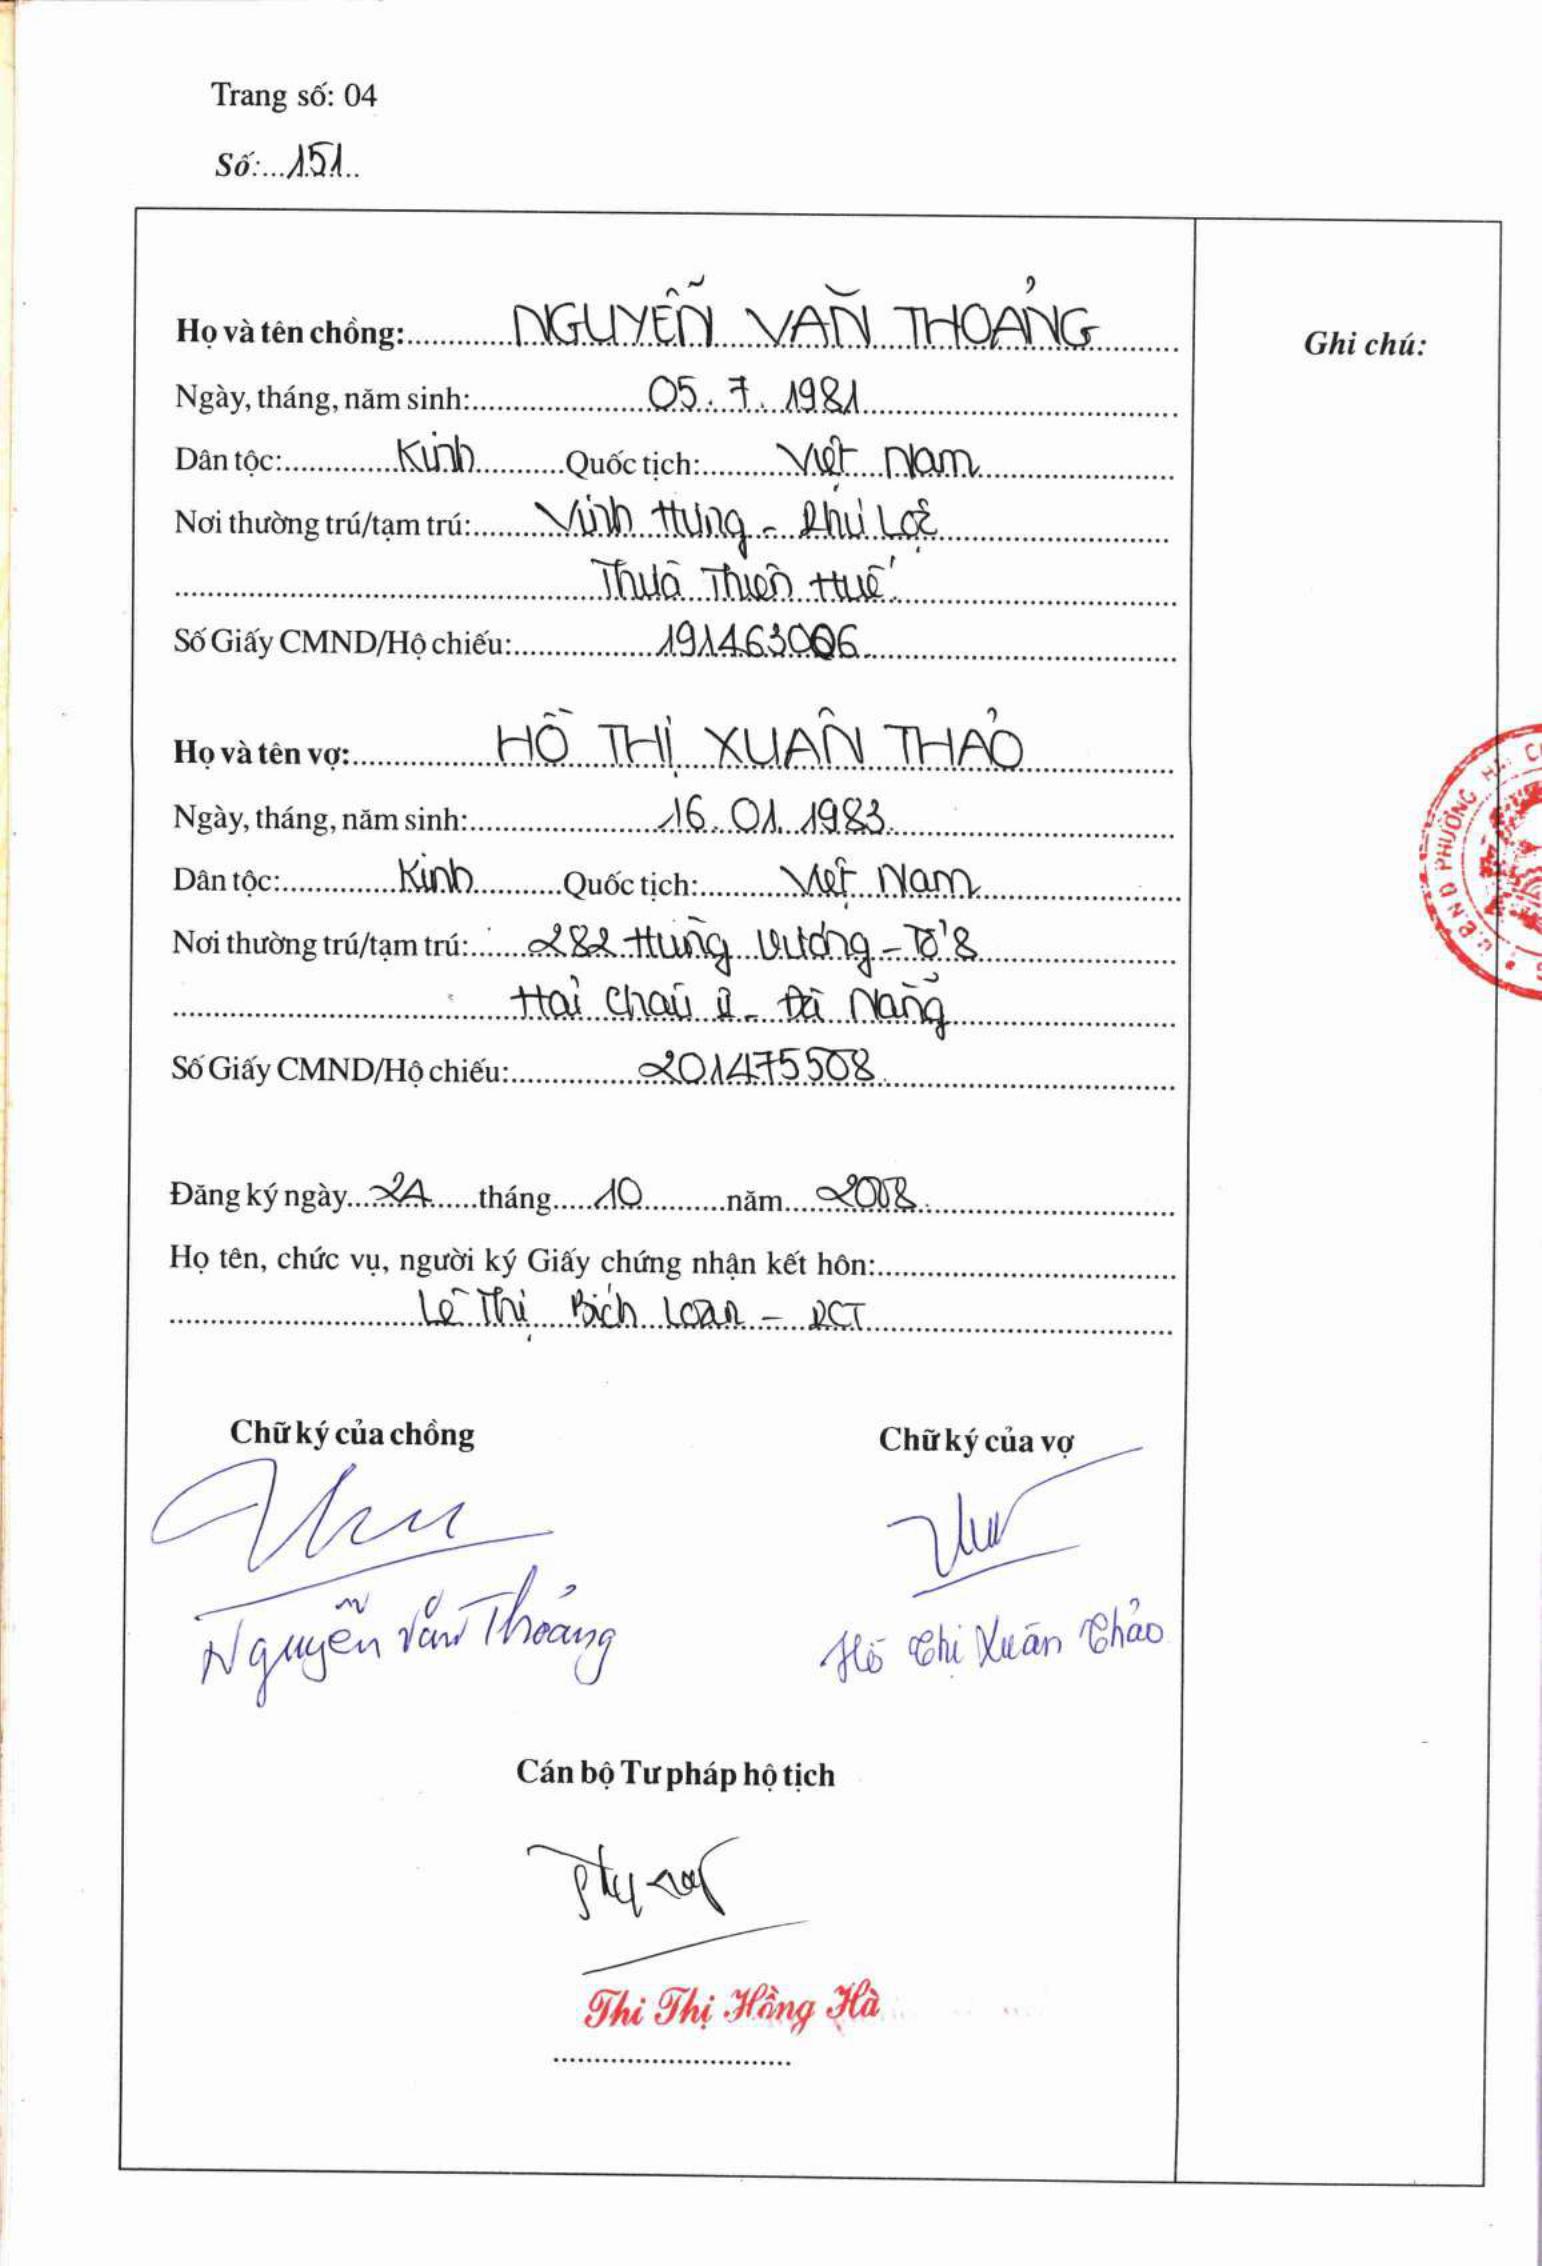 Trang số: 04
Số: 151
Họ và tên chồng: NGUYỄN VĂN THOẢNG
Ghi chú:
Ngày, tháng, năm sinh: 05.7.1981
Dân tộc: Kinh Quốc tịch: Việt Nam
Nơi thường trú/tạm trú: Vinh Hưng - Phú Lộc
Thừa Thiên Huế
Số Giấy CMND/Hộ chiếu: 191463006
Họ và tên vợ: HỒ THỊ XUÂN THẢO
Ngày, tháng, năm sinh: 16.01.1983
Dân tộc: Kinh Quốc tịch: Việt Nam
Nơi thường trú/tạm trú: 282 Hùng Vương - Tổ 8
Hải Châu II - Đà Nẵng
Số Giấy CMND/Hộ chiếu: 201475508
U.B.N.D PHƯỜNG HẢI
Đăng ký ngày 24 tháng 10 năm 2008
Họ tên, chức vụ, người ký Giấy chứng nhận kết hôn:
Lê Thị Bích Loan - PCT
Chữ ký của chồng Chữ ký của vợ
Nguyễn Văn Thoảng Hồ Thị Xuân Thảo
Cán bộ Tư pháp hộ tịch
Thi Thị Hồng Hà